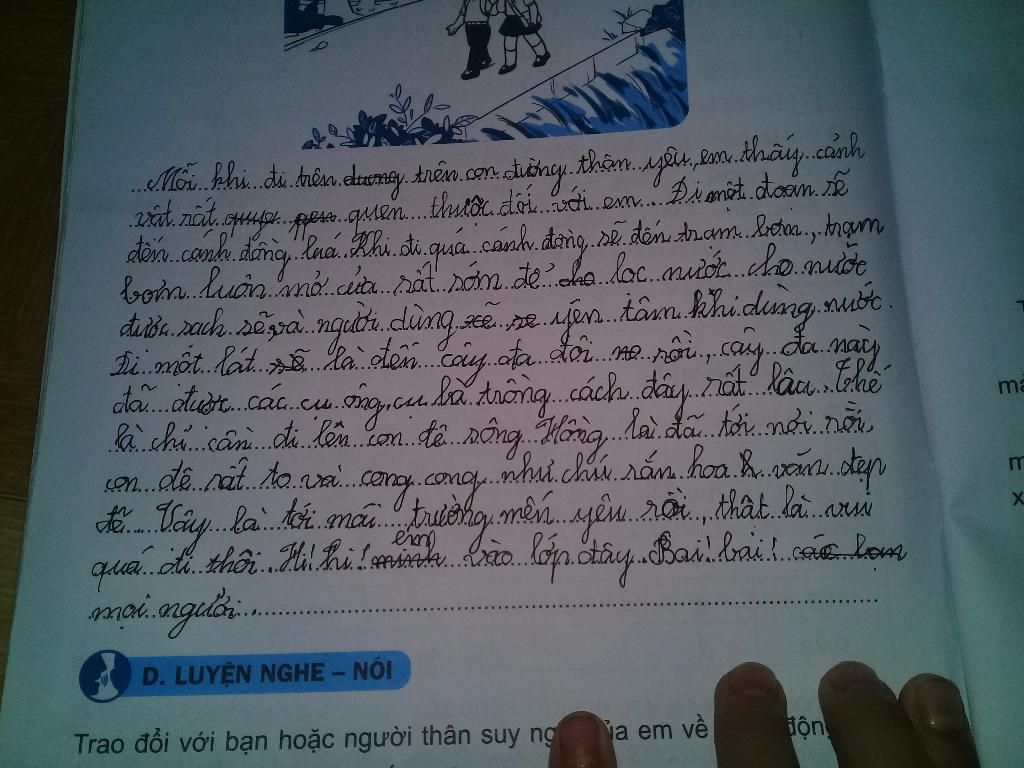 Mỗi khi đi trên duong trên con đường thân yêu, em thấy cảnh
vật rất quuye quen thuộc đối với em. Đi một đoạn sẽ
đến canh đồng luá. Khi đi quá cánh đồng sẽ đến trạm bơm, trạm
bơm luôn mở cửa rất sớm để cho lọc nước cho nước
được sạch sẽ, và người dùng sẽ yên tâm khi dùng nước.
Đi một lát sẽ là đến cây đa đôi no rồi, cây đa này
đã được các cụ ông, cụ bà trồng cách đây rất lâu. Thế
là chỉ cần đi lên con đê sông Hồng là đã tới nơi rồi,
con đê rất to và cong cong như chú rắn hoa văn đẹp
đẽ. Vậy là tới mái trường mến yêu rồi, thật là vui
quá đi thôi. Hi! hi! minh em vào lớp đây. Bai! bai! các bạn
mọi người.
D. LUYỆN NGHE – NÓI
Trao đổi với bạn hoặc người thân suy của em về động